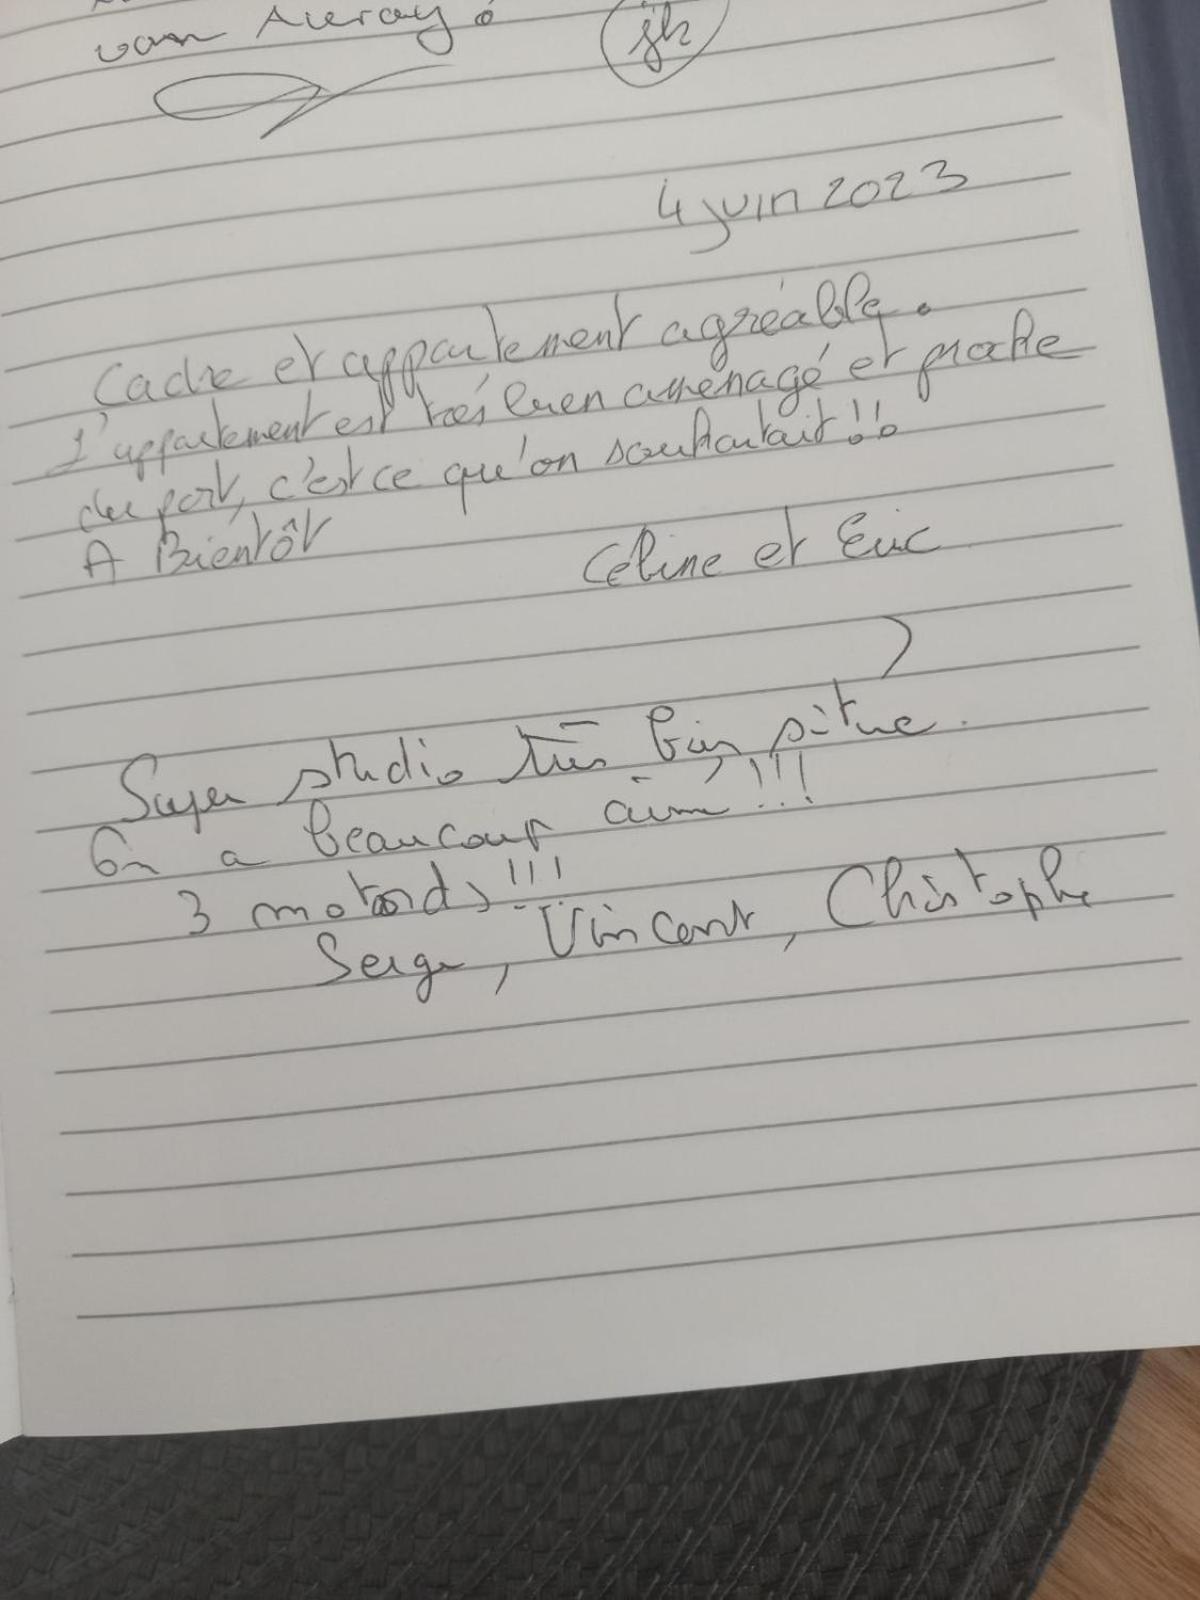 van Auray
jk
4 juin 2023
Cadre et appartement agréable.
L'appartement est très bien aménagé et proche
du port, c'est ce qu'on souhaitait !!
A Bientôt
Céline et Eric
Super studio très bien situé.
On a beaucoup aimé !!!
3 motards !!!
Serge, Vincent, Christophe